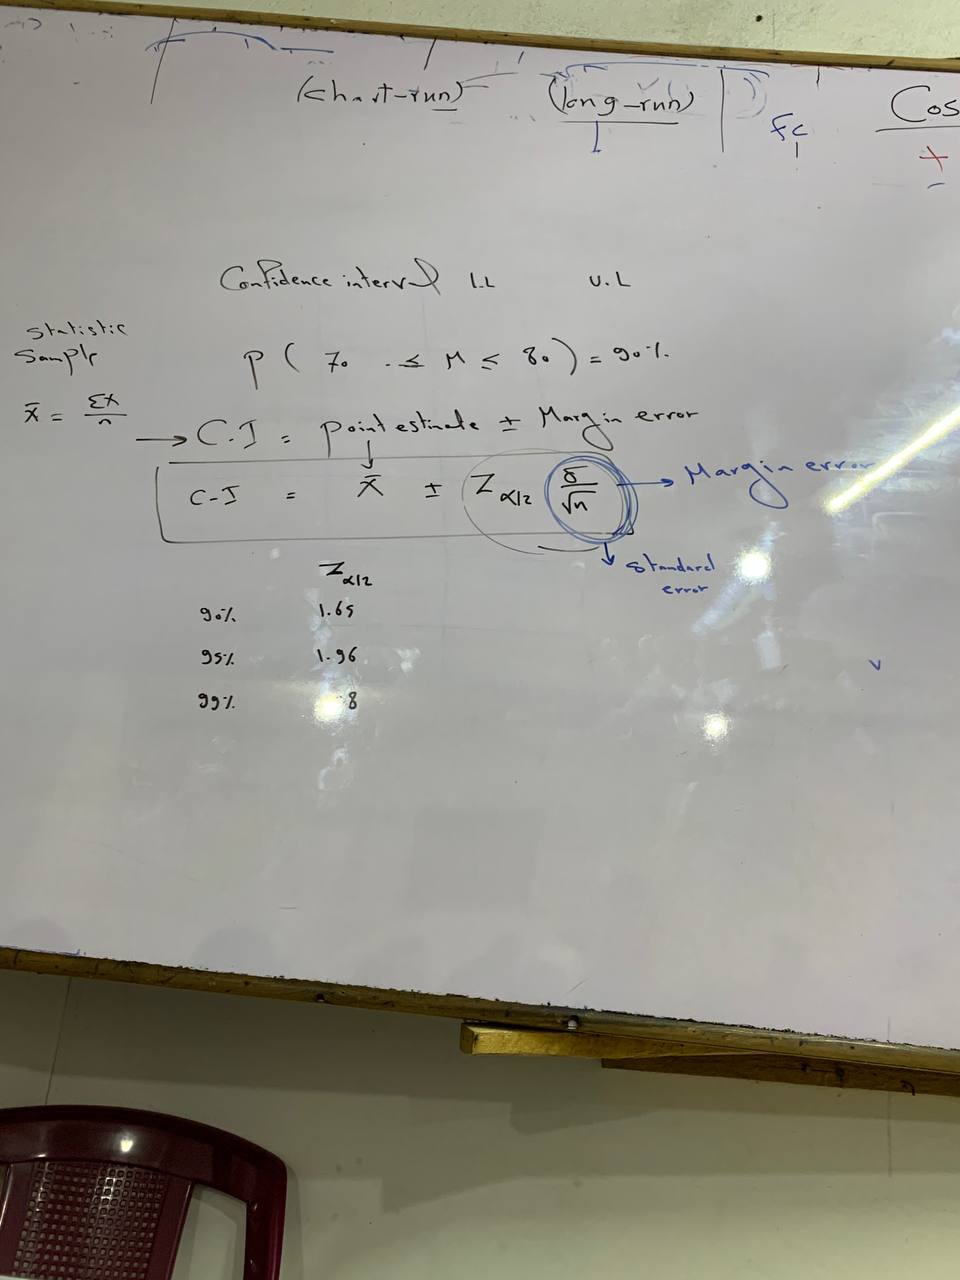 (short-run) (long-run) Fc Cos
+
-
Confidence interval L.L U.L
Statistic
Sample
P ( 70 ≤ M ≤ 80 ) = 90%
x̄ = Σx/n
→ C.I = point estimate ± Margin error
C-I = x̄ ± Z α/2 σ/√n → Margin error
↓ standard
error
Z α/2
90% 1.65
95% 1.96
99% 8